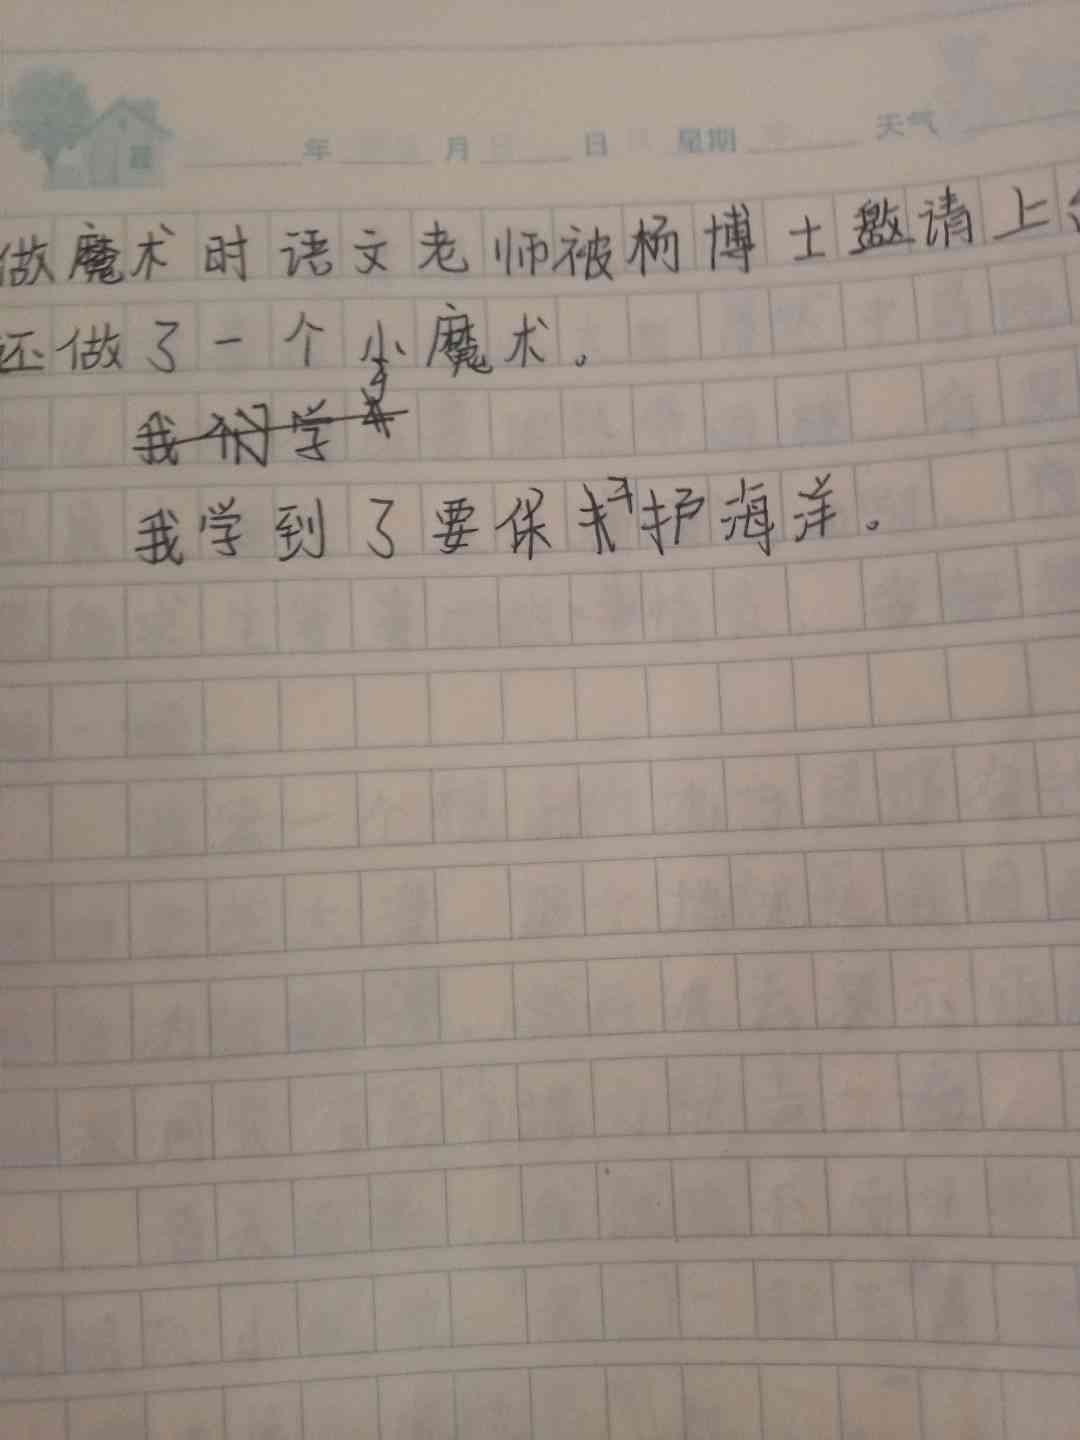 年 月 日 星期 天气
做魔术时语文老师被杨博士邀请上
还做了一个小魔术。
我们学
我学到了要保护海洋。